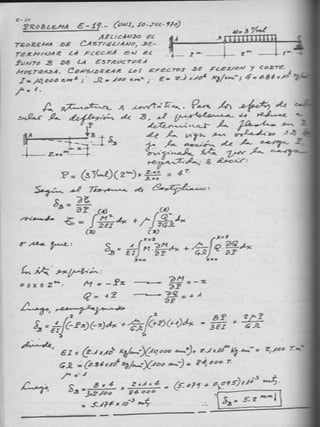 E-20
PROBLEMA E-19.- (UNI, 10-JUL-970)
APLICANDO EL
TEOREMA DE CASTIGLIANO, DE-
TERMINAR LA FLECHA EN EL
PUNTO B DE LA ESTRUCTURA
MOSTRADA. CONSIDERAR LOS EFECTOS DE FLEXION Y CORTE
I = 10,000 cm⁴ ; Ω = 100 cm² ; E = 2.1x10⁶ Kg/cm² ; G = 0.84x10⁶ Kg/cm²
μ = 1.
W = 2 T/ml
A
B
2 m
La estructura es isostática. Para los efectos de cal-
cular la deflexión de B, el problema se reduce a
determinar la flecha en B
de la viga en voladizo AB
bajo la acción de la carga P,
originada por la carga
repartida; es decir:
P
A
B
δB
2 m
P = (2 T/ml)(2 m) = 4 T.
Según el Teorema de Castigliano:
δB = ∂ζ/∂P
siendo ζ = ∫ M²/2EI dx + μ ∫ Q²/2GΩ dx
o sea que: δB = 1/EI ∫ M ∂M/∂P dx + μ/GΩ ∫ Q ∂Q/∂P dx
0 ≤ x ≤ 2 m. M = -Px → ∂M/∂P = -x
Q = +P → ∂Q/∂P = +1
Luego, reemplazando
δB = 1/EI ∫(-Px)(-x)dx + μ/GΩ ∫(+P)(+1)dx = 8P/3EI + 2μP/GΩ
donde,
EI = (2.1x10⁶ Kg/cm²)(10,000 cm⁴) = 2.1x10¹⁰ Kg.cm² = 2,100 T.m²
GΩ = (0.84x10⁶ Kg/cm²)(100 cm²) = 84,000 T.
μ = 1
Luego, δB = 8x4/3x2100 + 2x1x4/84,000 = (5.079 + 0.095)x10⁻³ mt.
= 5.174x10⁻³ mt. δB = 5.2 mm ↓